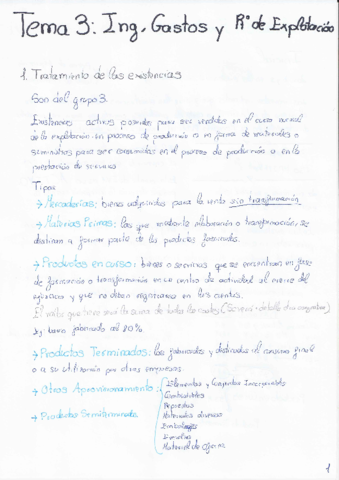 Tema 3: Ing, Gastos y Rº de Explotación
1. Tratamiento de las existencias
Son del grupo 3.
Existencias activos poseidos para ser vendidos en el curso normal
de la explotación en proceso de producción o en forma de materiales o
suministros para ser consumidos en el proceso de producción o en la
prestación de servicios
Tipos
→ Mercaderías: bienes adquiridos para la venta sin transformación.
→ Materias Primas: las que mediante elaboración o transformación, se
destinan a formar parte de los productos fabricados.
→ Productos en curso: bienes o servicios que se encuentran en fase
de formación o transformación en un centro de actividad al cierre del
ejercicio y que no deben registrarse en otras cuentas.
El valor que tiene será la suma de todos los costes
bien fabricado al 20%.
→ Productos Terminados: los fabricados y destinados al consumo final
o a su utilización por otras empresas.
→ Otros Aprovisionamientos:
Elementos y Conjuntos Incorporables
Combustibles
Repuestos
Materiales diversos
Embalajes
Envases
Material de oficina
→ Productos Semiterminados
1